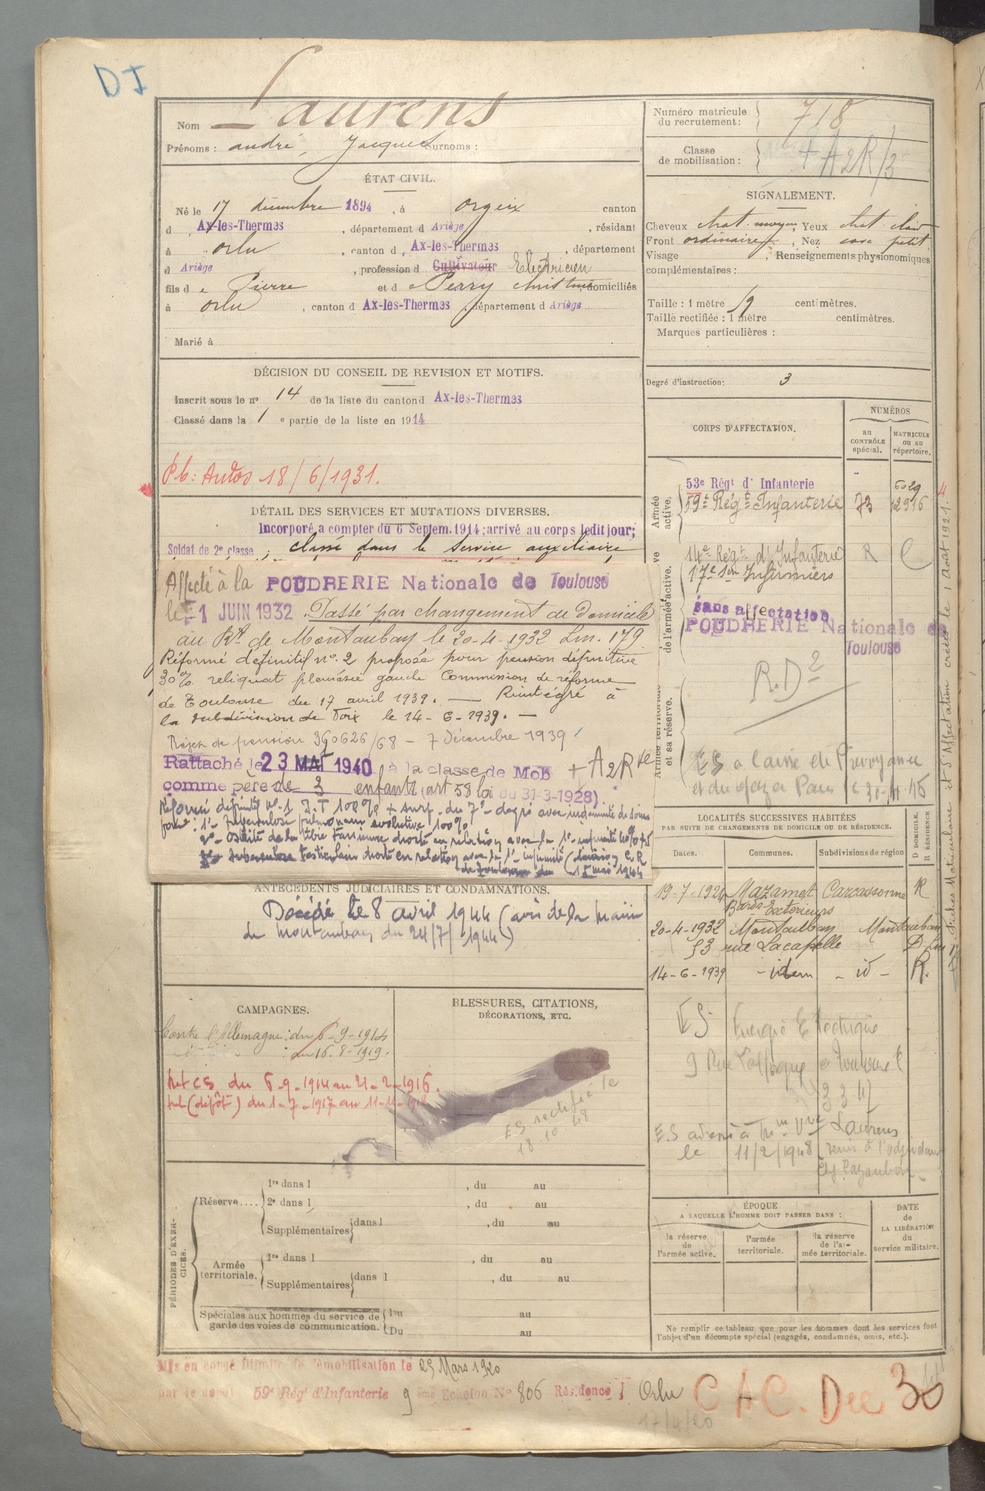 DI
Nom Laurens
Prénoms : andré, Jacques Surnoms :
ÉTAT CIVIL.
Né le 17 décembre 1894, à Orgeix canton
d Ax-les-Thermes, département d Ariège, résidant
à Orlu, canton d Ax-les-Thermes, département
d Ariège, profession d Cultivateur Electricien
fils d e Pierre et d e Perry Christine domiciliés
à Orlu, canton d Ax-les-Thermes, département d Ariège
Marié à
DÉCISION DU CONSEIL DE REVISION ET MOTIFS.
Inscrit sous le no 14 de la liste du canton d Ax-les-Thermes
Classé dans la 1 e partie de la liste en 1914
Pb: Autos 18/6/1931.
DÉTAIL DES SERVICES ET MUTATIONS DIVERSES.
Incorporé a compter du 6 Septem. 1914; arrivé au corps ledit jour;
Soldat de 2e classe, classé dans le service auxiliaire
Affecté à la POUDRERIE Nationale de Toulouse
le 1 JUIN 1932. Passé par changement de domicile
au Rt de Montauban le 20-4-1932 Lin. 179
Réformé définitif no 2 proposé pour pension définitive
30% reliquat pleurésie gauche Commission de réforme
de Toulouse du 17 avril 1939. — Réintégré à
la subdivision de Foix le 14-6-1939. —
Rejet de pension 390626/68 - 7 Décembre 1939
Rattaché le 23 MAI 1940 à la classe de Mob + A2Rte
comme père de 3 enfants (art 58 loi du 31-3-1928)
Réformé définitif no 1 I.T 100% + surp. du 7e degré avec indemnité de soins
pour: 1o Tuberculose pulmonaire évolutive 100%
2o Ostéite de la tibio tarsienne droite en relation avec la 1e infirmité 40% + 5
3o Tuberculose testiculaire droite en relation avec la 1e infirmité (décision C.R
de Toulouse du 1er mai 1944
ANTÉCÉDENTS JUDICIAIRES ET CONDAMNATIONS.
Décédé le 8 avril 1944 (avis de la mairie
de Montauban du 24/7/1944)
CAMPAGNES.
Contre l'Allemagne: du 6-9-1914
au 16-8-1919.
Int CS du 6-9-1914 au 21-2-1916.
Int (dépôt) du 1-7-1917 au 11-11-1918
BLESSURES, CITATIONS,
DÉCORATIONS, ETC.
ES rectifié le
18-10-48
PÉRIODES D'EXERCICES.
Réserve....
1re dans l , du au
2e dans l , du au
Supplémentaires dans l , du au
Armée territoriale.
1re dans l , du au
Supplémentaires dans l , du au
Spéciales aux hommes du service de
garde des voies de communication.
Du au
Du au
Mis en congé illimité de démobilisation le 25 Mars 1920
par le dépôt 59e Régt d'Infanterie 9 ème Echelon No 806 Résidence Orlu
17/4/20
CAC. Dec 30
Numéro matricule
du recrutement : 718
Classe
de mobilisation : + A2R/3
SIGNALEMENT.
Cheveux chat. moyen, Yeux chat. clair
Front ordinaire, Nez cave petit
Visage ; Renseignements physionomiques
complémentaires :
Taille : 1 mètre centimètres.
Taille rectifiée : 1 mètre centimètres.
Marques particulières :
Degré d'instruction : 3
CORPS D'AFFECTATION.
NUMÉROS
au
CONTRÔLE
spécial.
MATRICULE
ou au
répertoire.
Armée
active.
53e Régt d' Infanterie
59e Régt Infanterie 73
de l'armée active.
14e Régt d'Infanterie R C
17e Son Infirmiers
sans affectation
POUDRERIE Nationale de
Toulouse
Armée territoriale
et sa réserve.
R.D2
LOCALITÉS SUCCESSIVES HABITÉES
PAR SUITE DE CHANGEMENTS DE DOMICILE OU DE RÉSIDENCE.
D DOMICILE.
R RÉSIDENCE
Dates. Communes. Subdivisions de région
19-7-1921 Mazamet Carcassonne R
20-4-1932 Montauban Montauban D
53 rue Lacapelle
14-6-1939 - idem - id - R.
ES Energie Electrique
9 Rue
ES adressé à Mme Vve Laurens
le 11/2/1948
ÉPOQUE
A LAQUELLE L'HOMME DOIT PASSER DANS :
la réserve
de
l'armée active.
l'armée
territoriale.
la réserve
de l'ar-
mée territoriale.
DATE
de
LA LIBÉRATION
du
service militaire.
Ne remplir ce tableau que pour les hommes dont les services font
l'objet d'un décompte spécial (engagés, condamnés, omis, etc.).